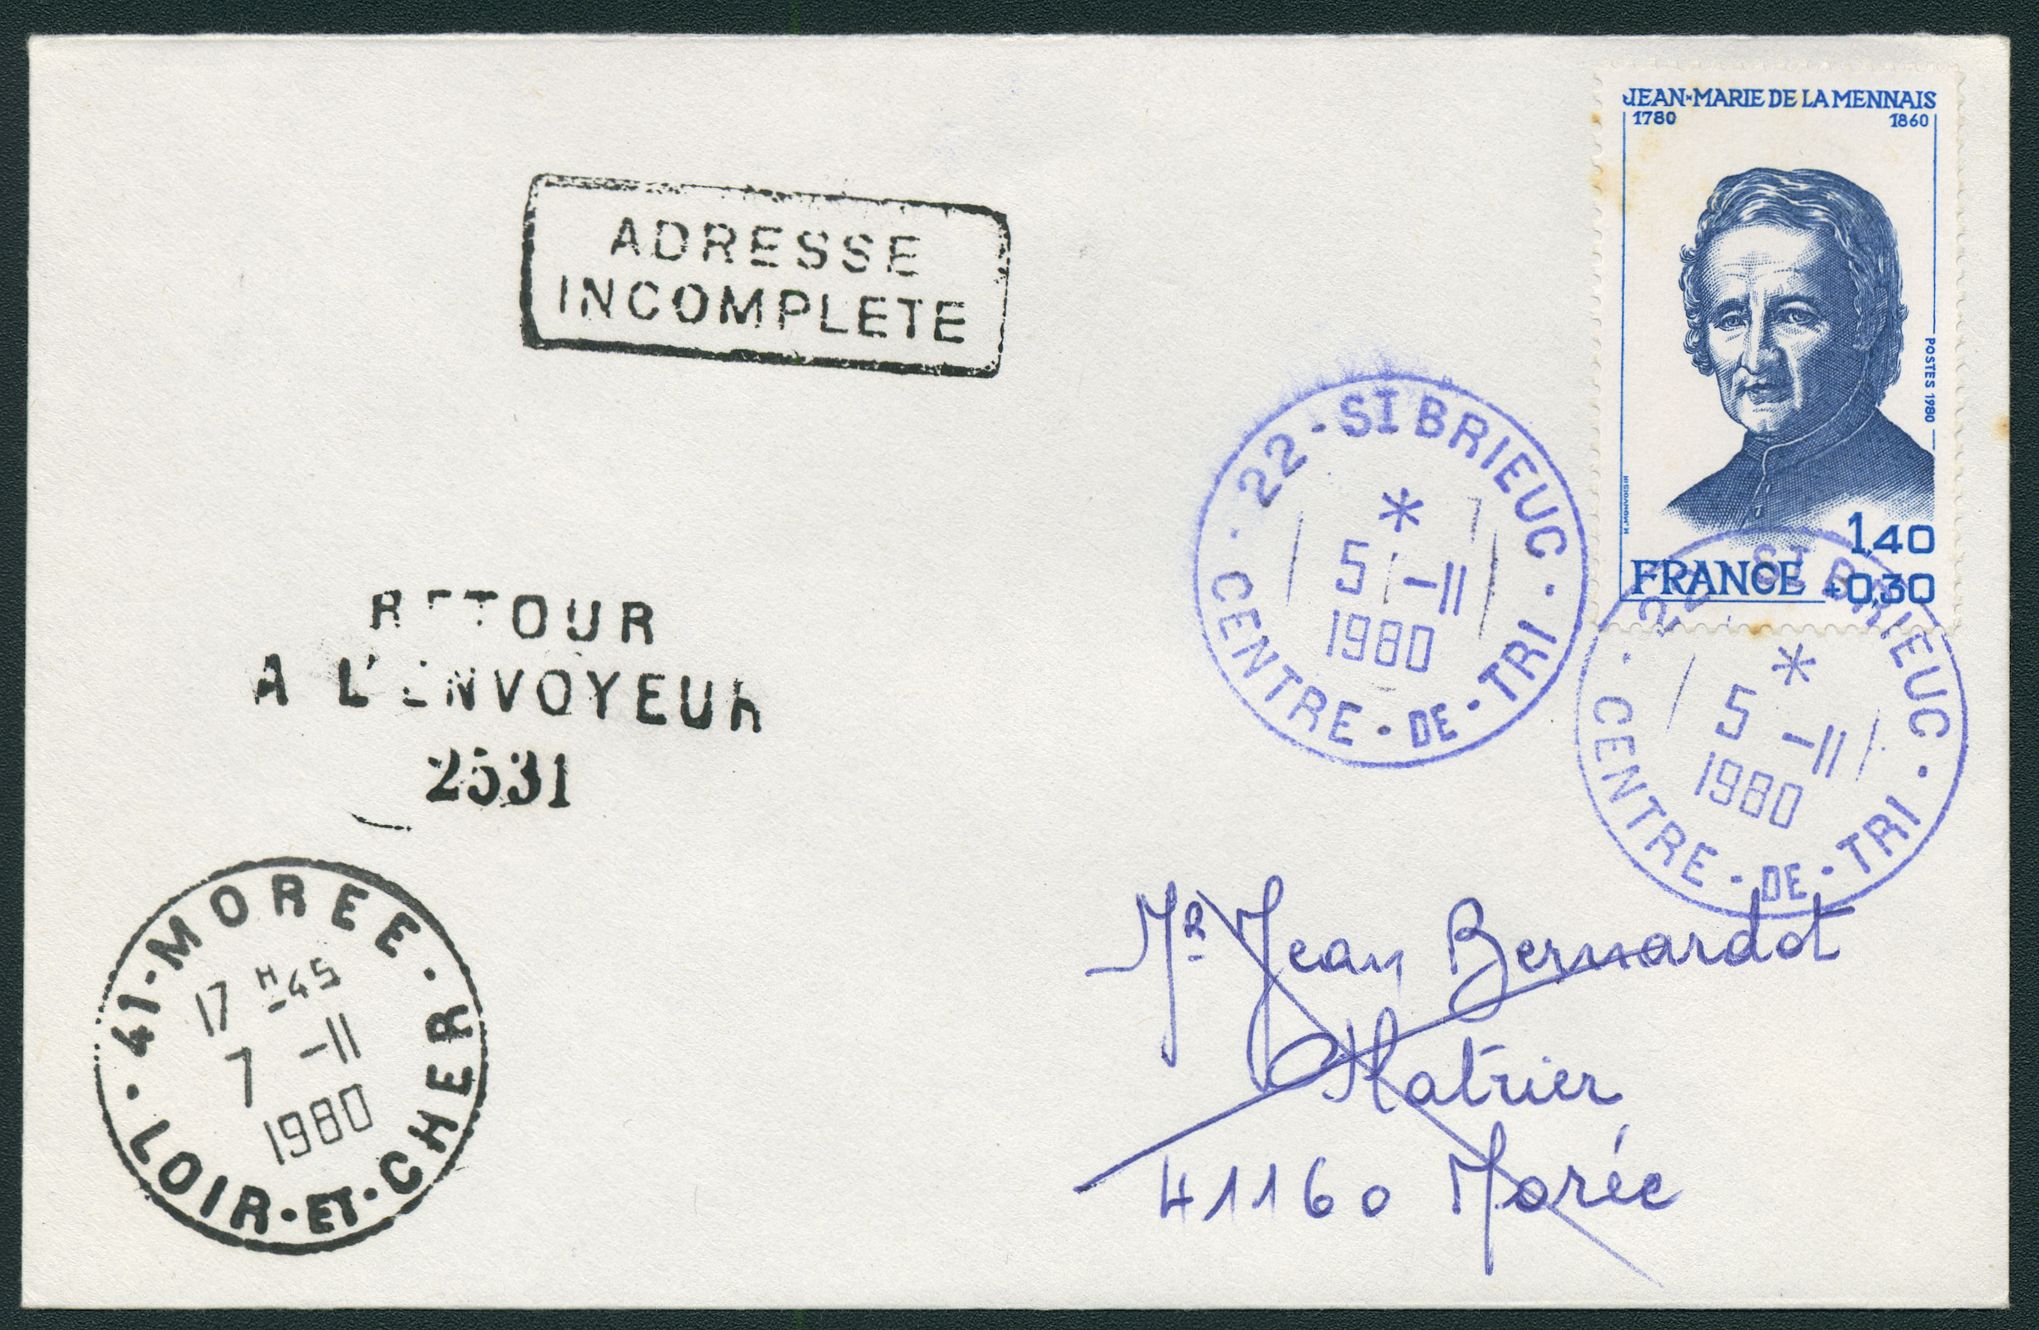 JEAN-MARIE DE LA MENNAIS
1780 1860
POSTES 1980
1,40
FRANCE +0,30
ADRESSE
INCOMPLETE
22 - ST BRIEUC
*
5 -11
1980
CENTRE - DE - TRI
22 - ST BRIEUC
*
5 -11
1980
CENTRE - DE - TRI
RETOUR
A L'ENVOYEUR
2531
41 - MOREE
17 H 45
7 -11
1980
LOIR - ET - CHER
Mr Jean Bernardot
41160 Morée